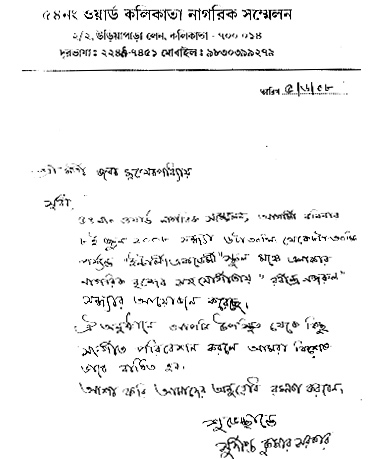 ৫৪নং ওয়ার্ড কলিকাতা নাগরিক সম্মেলন
২/২, উড়িয়াপাড়া লেন, কলিকাতা - ৭০০ ০১৪
দূরভাষ : ২২৪৪-৭৪৫১ মোবাইল : ৯৮৩০৩৯৯২৭৯
তারিখ ৫/৬/০৮
শ্রীমতী জবা মুখোপাধ্যায়
সুধী,
৫৪নং ওয়ার্ড নাগরিক সম্মেলন, আগামী রবিবার
৮ই জুন ২০০৮ সন্ধ্যা ৬টা থেকে
পর্যন্ত "ইন্টালী একাডেমী" স্কুল মঞ্চে এলাকার
নাগরিক বৃন্দের সহযোগীতায় "রবীন্দ্র নজরুল"
সন্ধ্যার আয়োজন করেছে।
ঐ অনুষ্ঠানে আপনি উপস্থিত থেকে কিছু
সংগীত পরিবেশন করলে আমরা বিশেষ
ভাবে বাধিত হব।
আশা করি আমাদের অনুরোধ রক্ষা করবেন।
শুভেচ্ছান্তে
কুমার সরকার